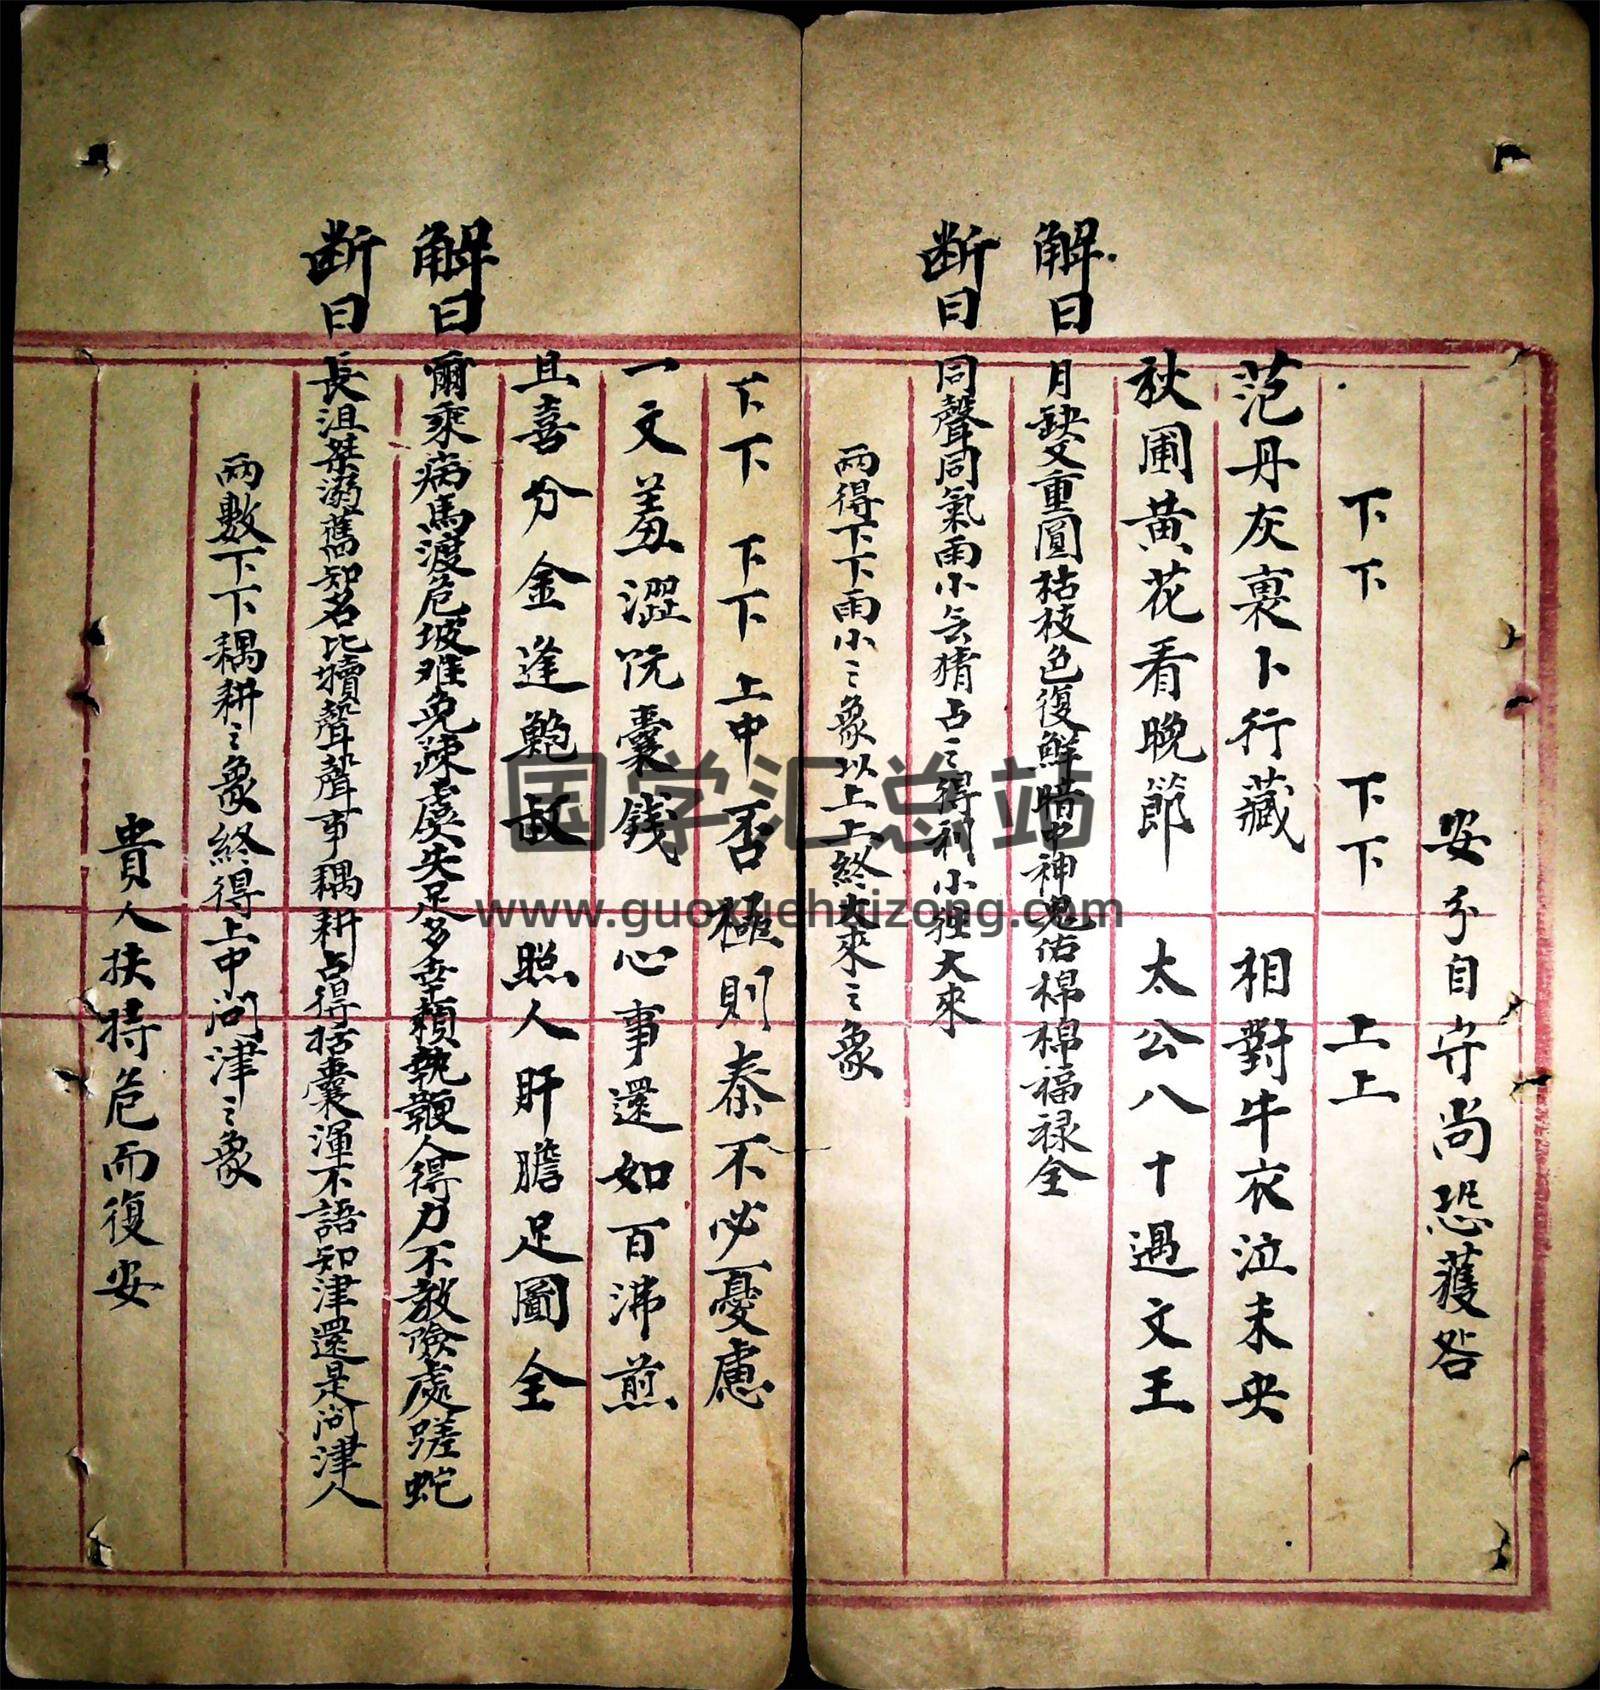 安分自守尚恐獲咎
下下 下下 上上
范丹灰裏卜行藏 相對牛衣泣未央
秋圃黃花看晚節 太公八十遇文王
解曰 月缺又重圓枯枝色復鮮暗中神鬼佑棉棉福禄全
断曰 同聲同氣雨小云猜占之得利小往大來
兩得下下雨小之象以上上終大來之象
下下 下下 上中 否極則泰不必憂慮
一文羞澀阮囊錢 心事還如百沸煎
且喜分金逢鮑叔 照人肝膽足圖全
解曰 爾乘病馬渡危坡难免疎虞失足多幸賴執鞭人得力不教險處蹉蛇
断曰 長沮桀溺舊知名比犢聲聲事耦耕占得括囊渾不語知津還是問津人
兩數下下耦耕之象終得上中問津之象
貴人扶持危而復安
国学汇总站
www.guoxuehuizong.com